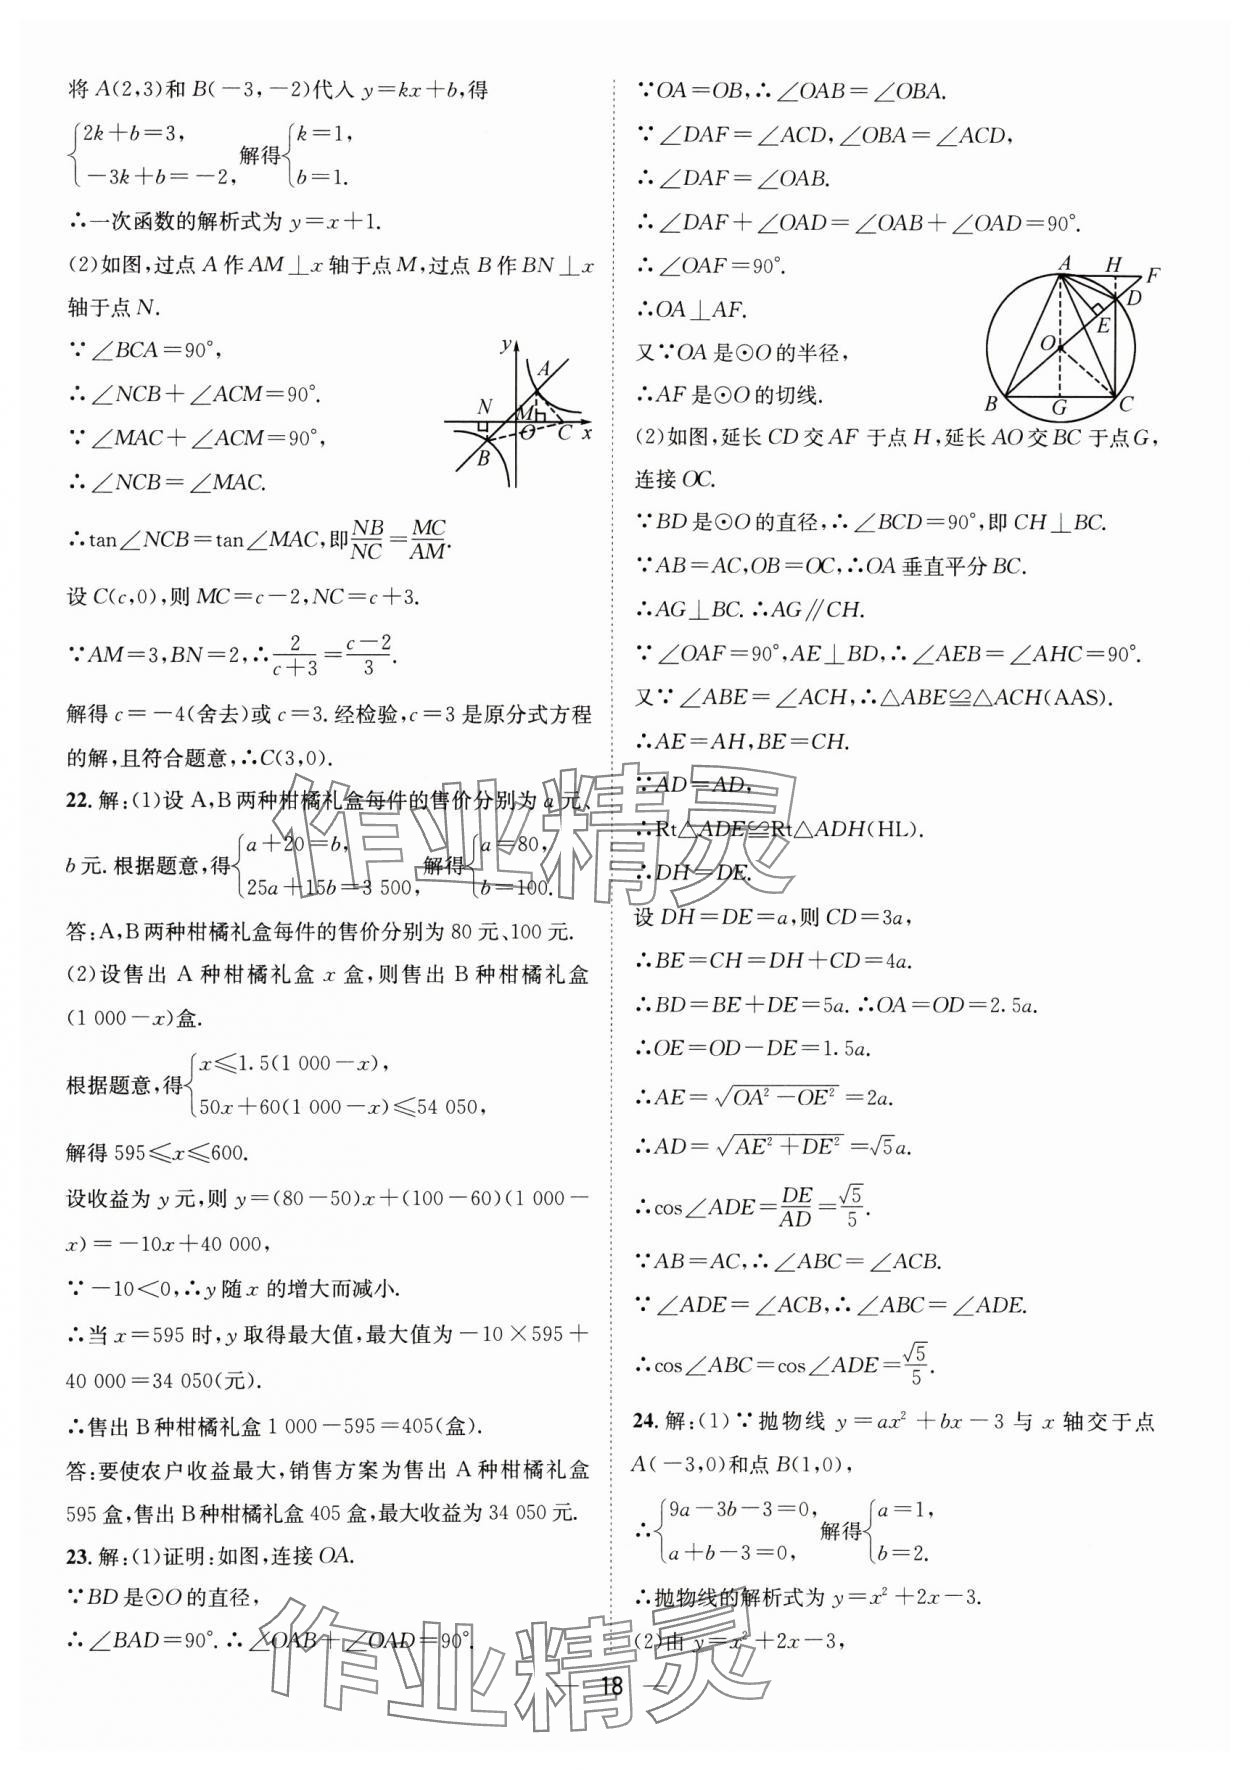 将 A(2,3)和 B(-3,-2)代入 y=kx+b,得
{2k+b=3, -3k+b=-2, 解得{k=1, b=1.
∴一次函数的解析式为 y=x+1.
(2)如图,过点 A 作 AM⊥x 轴于点 M,过点 B 作 BN⊥x
轴于点 N.
∵∠BCA=90°,
∴∠NCB+∠ACM=90°.
∵∠MAC+∠ACM=90°,
∴∠NCB=∠MAC.
y A N M O C x B
∴tan∠NCB=tan∠MAC,即NB/NC=MC/AM.
设 C(c,0),则 MC=c-2,NC=c+3.
∵AM=3,BN=2,∴2/(c+3)=(c-2)/3.
解得 c=-4(舍去)或 c=3. 经检验,c=3 是原分式方程
的解,且符合题意,∴C(3,0).
22. 解:(1)设 A,B两种柑橘礼盒每件的售价分别为 a 元、
b 元. 根据题意,得{a+20=b, 25a+15b=3 500, 解得{a=80, b=100.
答:A,B两种柑橘礼盒每件的售价分别为 80 元、100 元.
(2)设售出 A 种柑橘礼盒 x 盒,则售出 B 种柑橘礼盒
(1 000-x)盒.
根据题意,得{x≤1.5(1 000-x), 50x+60(1 000-x)≤54 050,
解得 595≤x≤600.
设收益为 y 元,则 y=(80-50)x+(100-60)(1 000-
x)=-10x+40 000,
∵-10<0,∴y 随 x 的增大而减小.
∴当 x=595 时,y 取得最大值,最大值为-10×595+
40 000=34 050(元).
∴售出 B 种柑橘礼盒 1 000-595=405(盒).
答:要使农户收益最大,销售方案为售出 A 种柑橘礼盒
595 盒,售出 B 种柑橘礼盒 405 盒,最大收益为 34 050 元.
23. 解:(1)证明:如图,连接 OA.
∵BD 是⊙O 的直径,
∴∠BAD=90°. ∴∠OAB+∠OAD=90°.
∵OA=OB,∴∠OAB=∠OBA.
∵∠DAF=∠ACD,∠OBA=∠ACD,
∴∠DAF=∠OAB.
∴∠DAF+∠OAD=∠OAB+∠OAD=90°.
∴∠OAF=90°.
∴OA⊥AF.
又∵OA 是⊙O 的半径,
∴AF 是⊙O 的切线.
A H F D E O B G C
(2)如图,延长 CD 交 AF 于点 H,延长 AO 交 BC 于点 G,
连接 OC.
∵BD 是⊙O 的直径,∴∠BCD=90°,即 CH⊥BC.
∵AB=AC,OB=OC,∴OA 垂直平分 BC.
∴AG⊥BC. ∴AG∥CH.
∵∠OAF=90°,AE⊥BD,∴∠AEB=∠AHC=90°.
又∵∠ABE=∠ACH,∴△ABE≌△ACH(AAS).
∴AE=AH,BE=CH.
∵AD=AD,
∴Rt△ADE≌Rt△ADH(HL).
∴DH=DE.
设 DH=DE=a,则 CD=3a,
∴BE=CH=DH+CD=4a.
∴BD=BE+DE=5a. ∴OA=OD=2.5a.
∴OE=OD-DE=1.5a.
∴AE=√(OA²-OE²)=2a.
∴AD=√(AE²+DE²)=√5a.
∴cos∠ADE=DE/AD=√5/5.
∵AB=AC,∴∠ABC=∠ACB.
∵∠ADE=∠ACB,∴∠ABC=∠ADE.
∴cos∠ABC=cos∠ADE=√5/5.
24. 解:(1)∵抛物线 y=ax²+bx-3 与 x 轴交于点
A(-3,0)和点 B(1,0),
∴{9a-3b-3=0, a+b-3=0, 解得{a=1, b=2.
∴抛物线的解析式为 y=x²+2x-3.
(2)由 y=x²+2x-3,
— 18 —
作业精灵
作业精灵